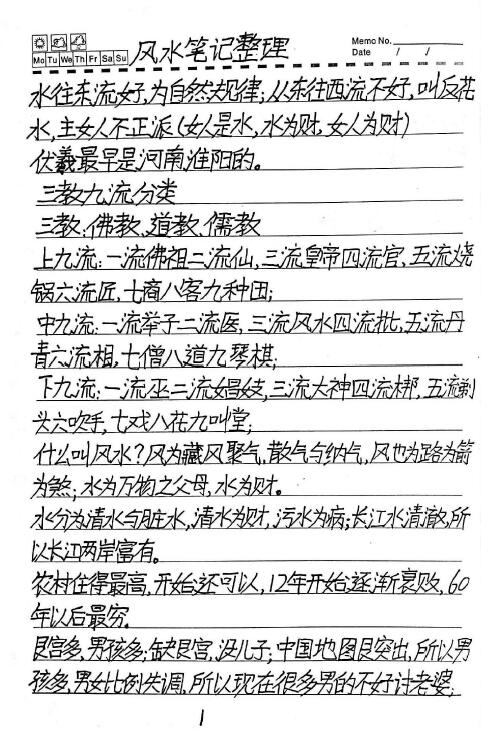 Memo No.
Mo Tu We Th Fr Sa Su
Date / /
风水笔记整理
水往东流好,为自然规律;从东往西流不好,叫反花
水,主女人不正派(女人是水,水为财,女人为财)
伏羲最早是河南淮阳的。
三教九流分类
三教:佛教、道教、儒教
上九流:一流佛祖二流仙,三流皇帝四流官,五流烧
锅六流匠,七商八客九种田;
中九流:一流举子二流医,三流风水四流批,五流丹
青六流相,七僧八道九琴棋;
下九流:一流巫二流娼妓,三流大神四流梆,五流剃
头六吹手,七戏八花九叫堂;
什么叫风水?风为藏风聚气,散气与纳气,风也为路为箭
为煞;水为万物之父母,水为财。
水分为清水与脏水,清水为财,污水为病;长江水清澈,所
以长江两岸富有。
农村住得最高,开始还可以,12年开始逐渐衰败,60
年以后最穷。
艮宫多,男孩多;缺艮宫,没儿子;中国地图艮突出,所以男
孩多,男女比例失调,所以现在很多男的不好讨老婆;
1